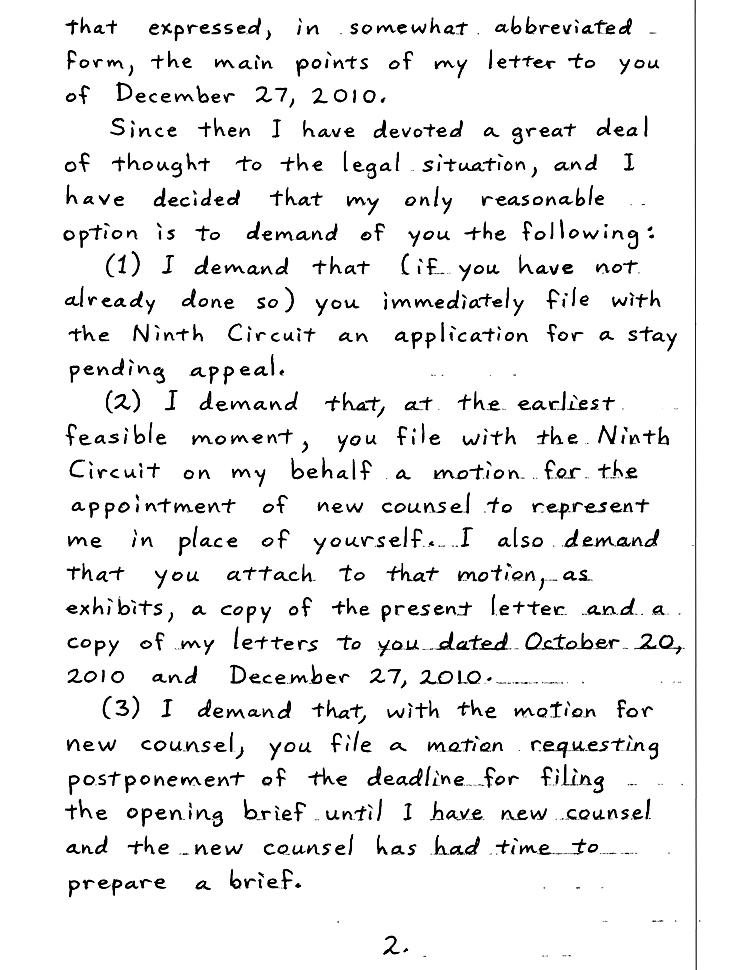 that expressed, in somewhat abbreviated
form, the main points of my letter to you
of December 27, 2010.
Since then I have devoted a great deal
of thought to the legal situation, and I
have decided that my only reasonable
option is to demand of you the following:
(1) I demand that (if you have not
already done so) you immediately file with
the Ninth Circuit an application for a stay
pending appeal.
(2) I demand that, at the earliest
feasible moment, you file with the Ninth
Circuit on my behalf a motion for the
appointment of new counsel to represent
me in place of yourself. I also demand
that you attach to that motion, as
exhibits, a copy of the present letter and a
copy of my letters to you dated October 20,
2010 and December 27, 2010.
(3) I demand that, with the motion for
new counsel, you file a motion requesting
postponement of the deadline for filing
the opening brief until I have new counsel
and the new counsel has had time to
prepare a brief.
2.